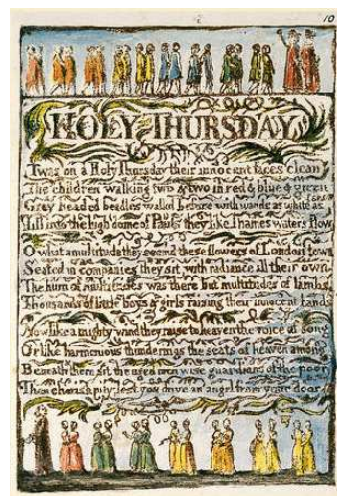 10
HOLY THURSDAY
Twas on a Holy Thursday their innocent faces clean
The children walking two & two in red & blue & green
Grey headed beadles walkd before with wands as white as snow
Till into the high dome of Pauls they like Thames waters flow
O what a multitude they seemd these flowers of London town
Seated in companies they sit with radiance all their own
The hum of multitudes was there but multitudes of lambs
Thousands of little boys & girls raising their innocent hands
Now like a mighty wind they raise to heaven the voice of song
Or like harmonious thunderings the seats of heaven among
Beneath them sit the aged men wise guardians of the poor
Then cherish pity, lest you drive an angel from your door